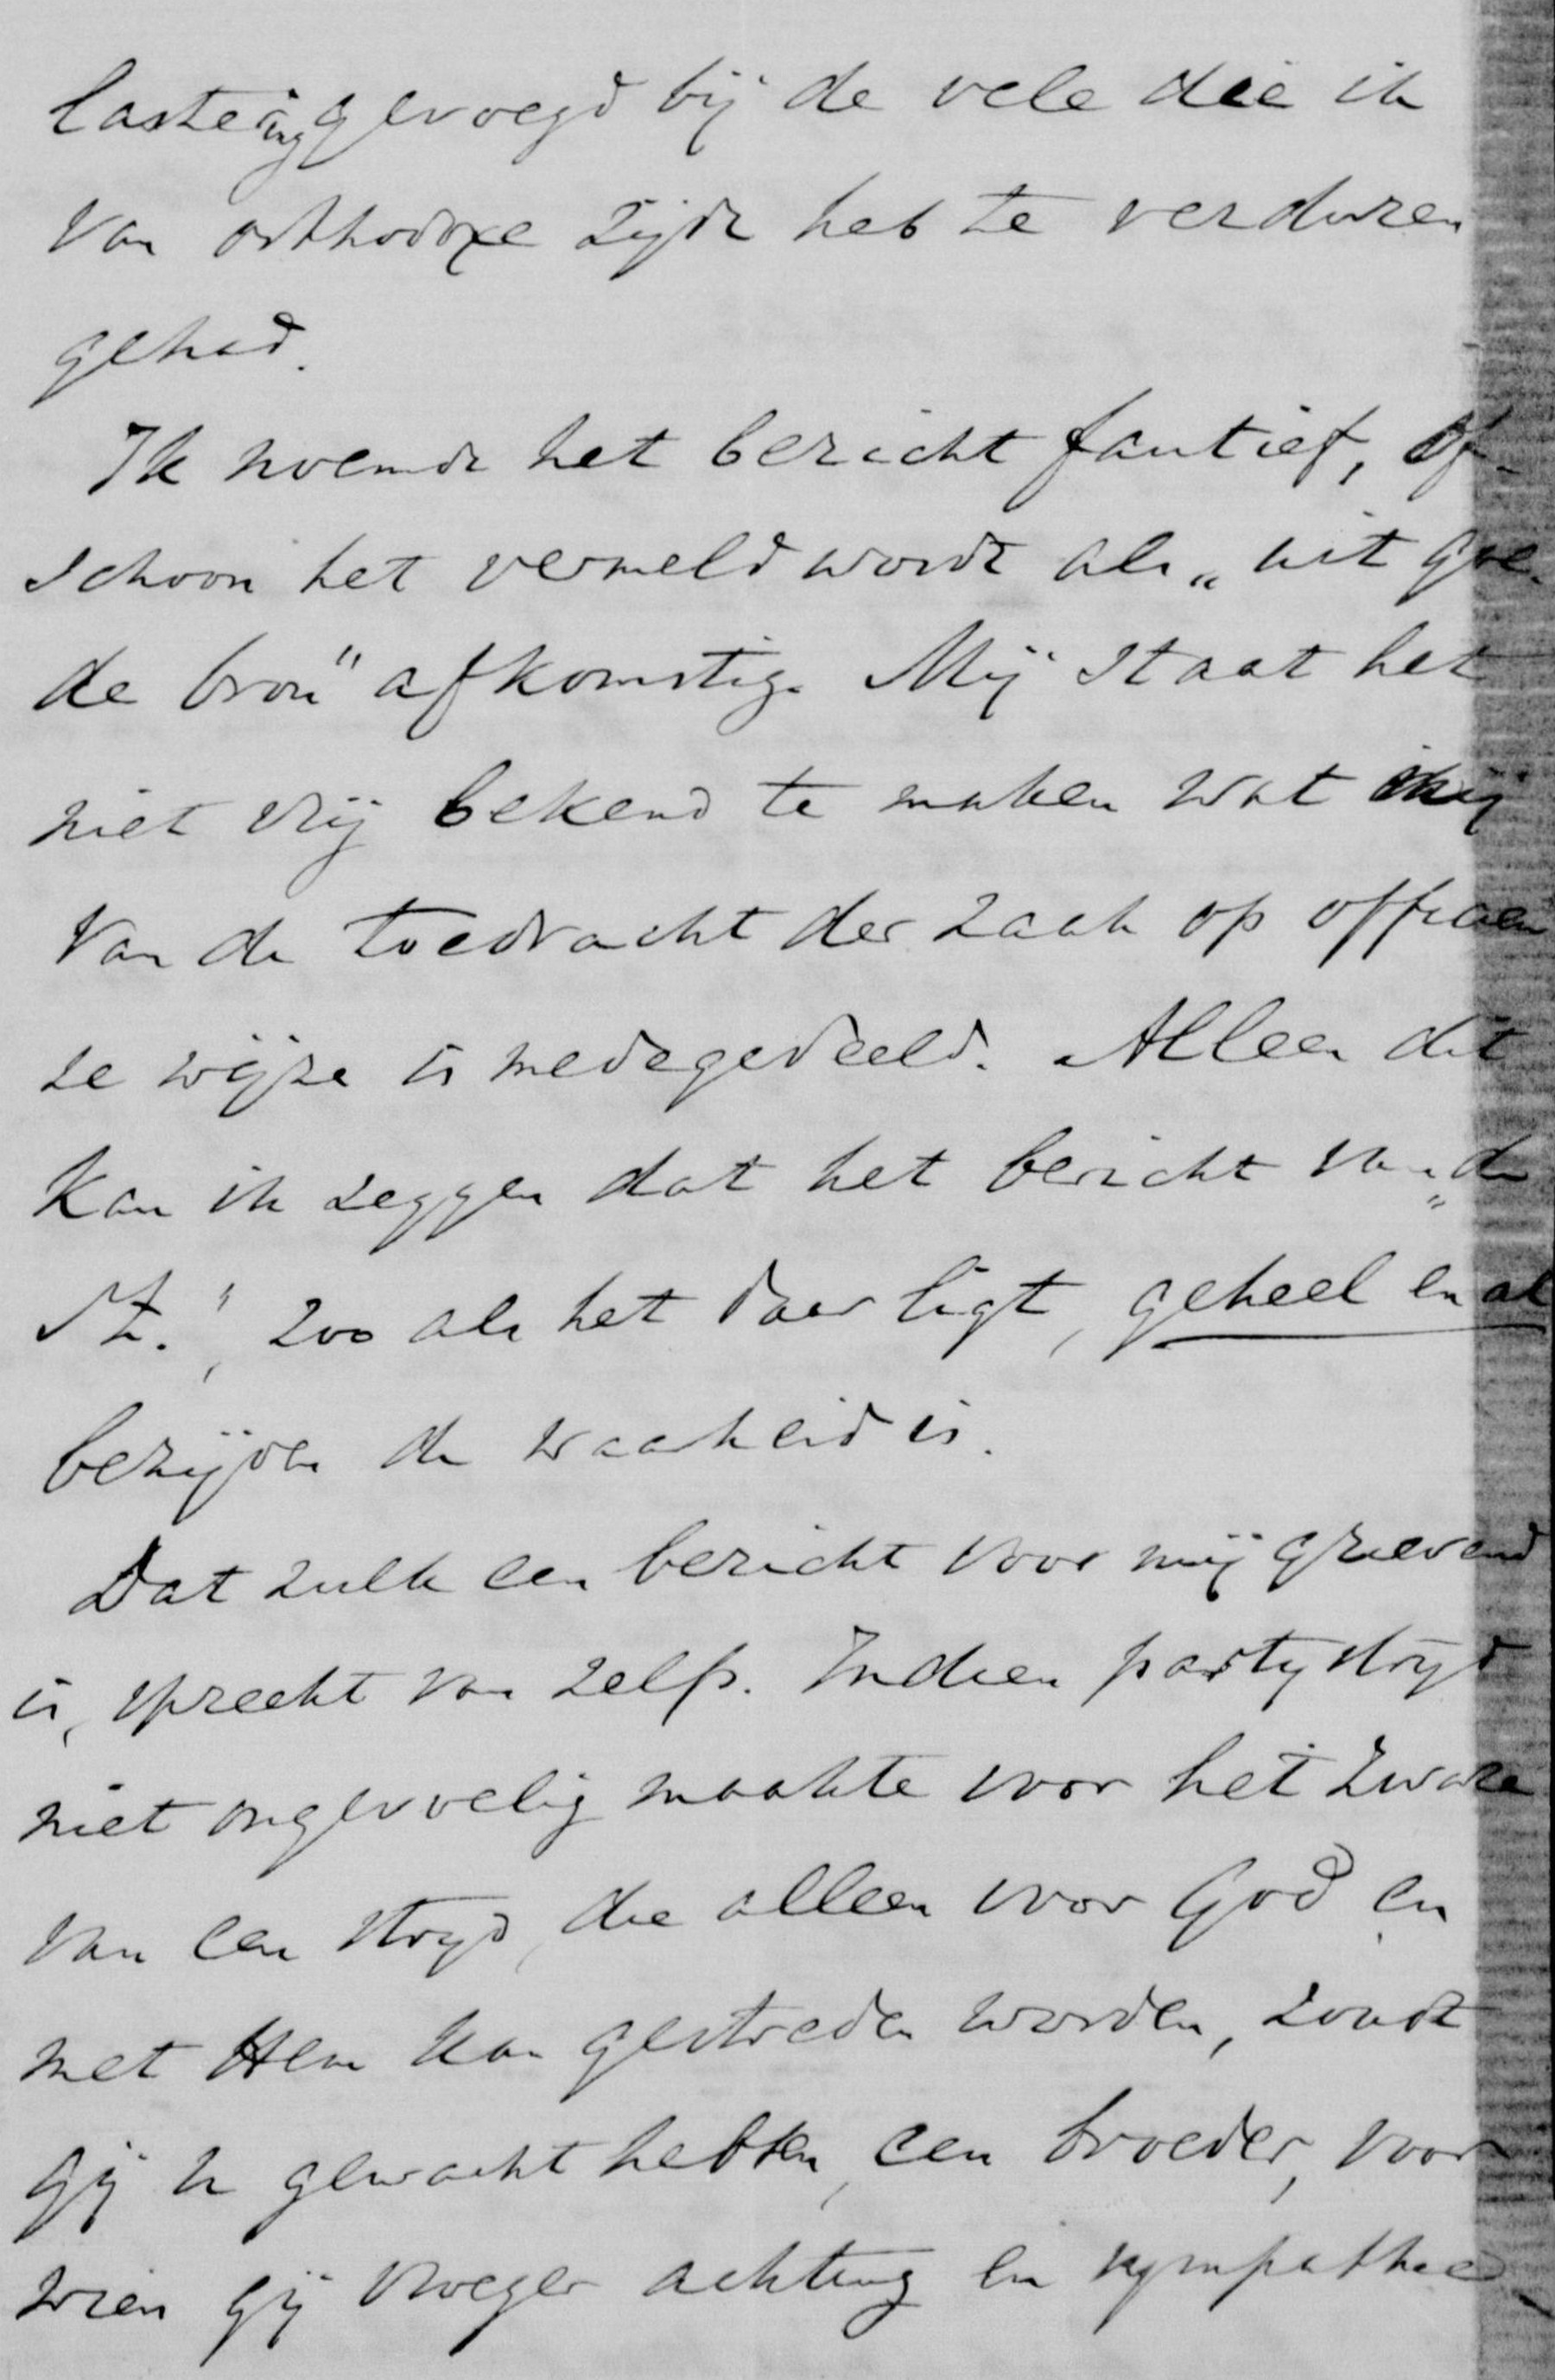 lastering gevoegd bij de vele die ik
van orthodoxe zijde heb te verduren
gehad.
Ik noemde het bericht fautief, of-
schoon het vermeld wordt als „uit goe-
de bron" afkomstig. Mij staat het
niet vrij bekend te maken wat mij
van de toedracht der zaak op officieu
ze wijze is medegedeeld. Alleen dit
kan ik zeggen dat het bericht van „de
St.", zoo als het daar ligt, geheel en al
bezijden de waarheid is.
Dat zulk een bericht voor mij grievend
is, spreekt van zelf. Indien partijstrijd
niet ongevoelig maakte voor het zware
van een strijd, die alleen voor God en
met Hem kan gestreden worden, zoudt
gij u gewacht hebben, een broeder, voor
wien gij vroeger achting en sympathie